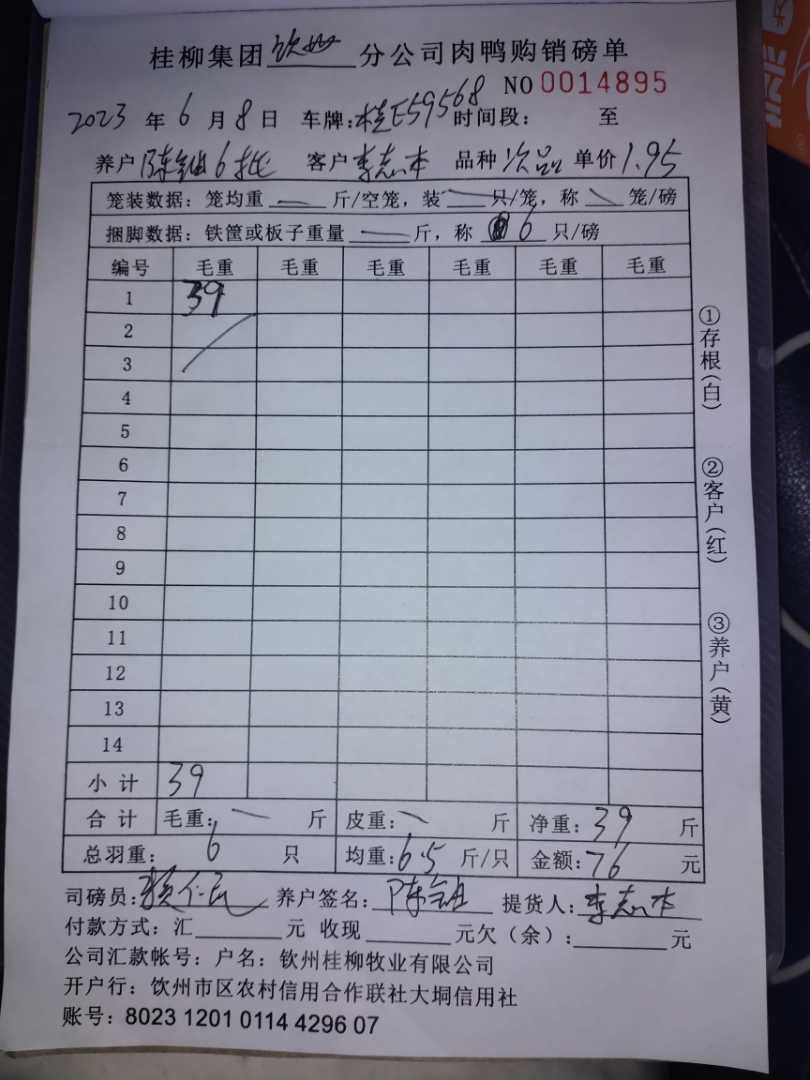 桂柳集团 钦州 分公司肉鸭购销磅单
NO 0014895
2023 年 6 月 8 日 车牌:桂E59568 时间段: 至
养户 陈 6批 客户 李志本 品种 次品 单价 1.95
笼装数据: 笼均重 — 斤/空笼, 装 — 只/笼, 称 — 笼/磅
捆脚数据: 铁筐或板子重量 — 斤, 称 6 只/磅
编号 毛重 毛重 毛重 毛重 毛重 毛重
1 39
2
3
4
5
6
7
8
9
10
11
12
13
14
小计 39
合计 毛重: — 斤 皮重: — 斤 净重: 39 斤
总羽重: 6 只 均重: 6.5 斤/只 金额: 76 元
司磅员: 养户签名: 陈 提货人: 李志本
付款方式: 汇 元 收现 元欠(余): 元
公司汇款帐号: 户名: 钦州桂柳牧业有限公司
开户行: 钦州市区农村信用合作联社大垌信用社
账号: 8023 1201 0114 4296 07
①存根(白)
②客户(红)
③养户(黄)